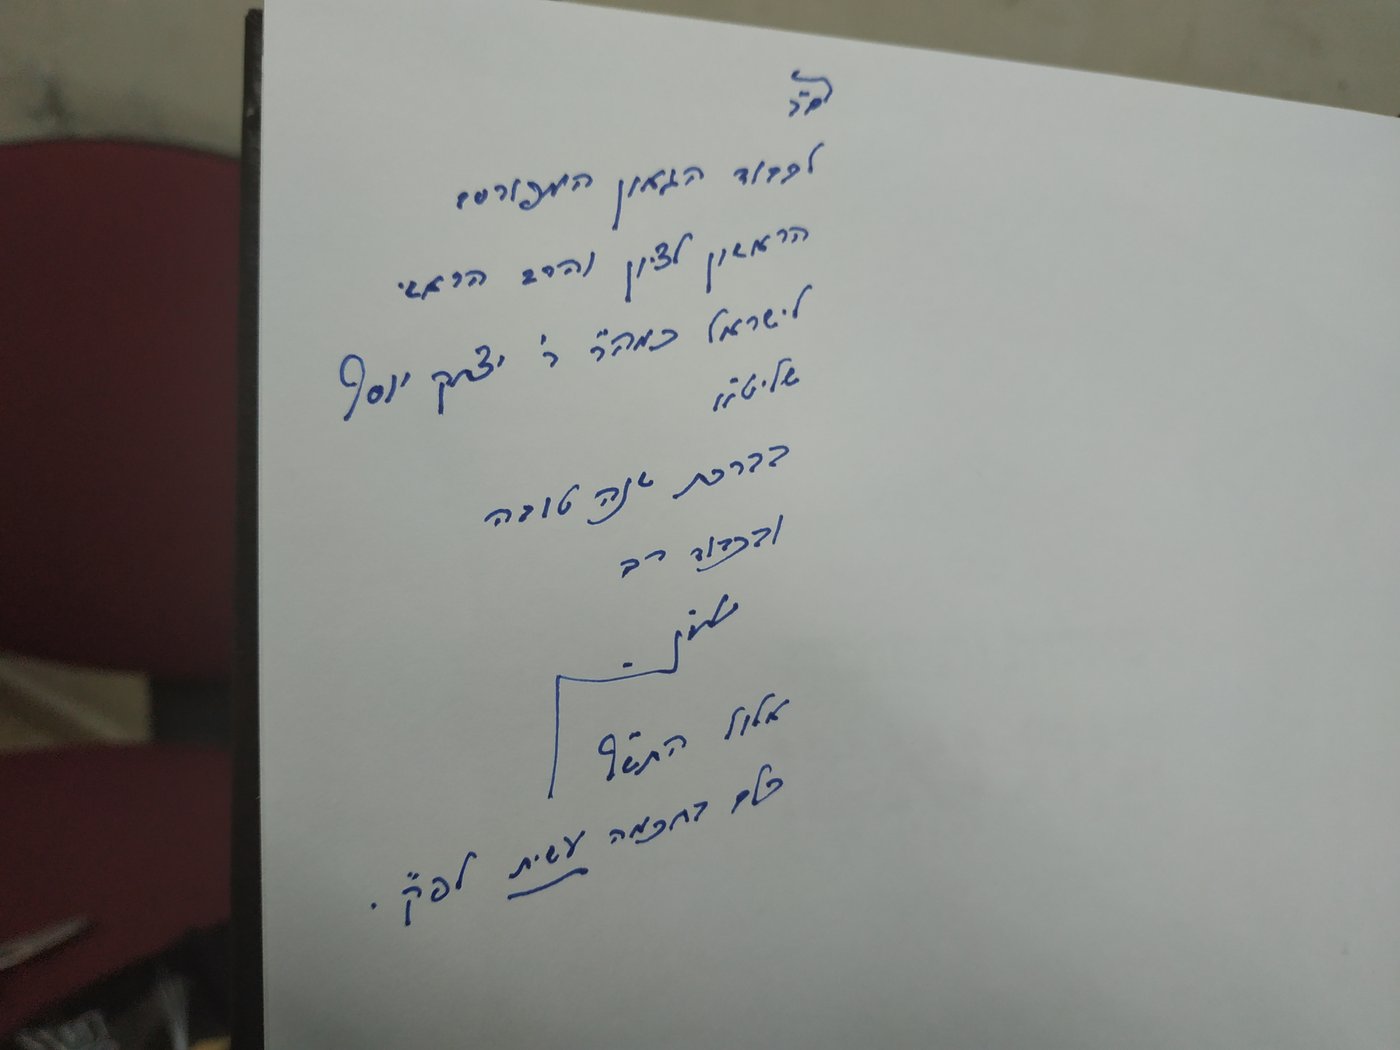 לכבוד הגאון המפורסם
הראשון לציון והרב הראשי
לישראל כמהר"ר ר' יצחק יוסף
שליט"א
בברכת שנה טובה
ובכבוד רב
אלול התש"ף
כולם בחכמה עשית לפ"ק.